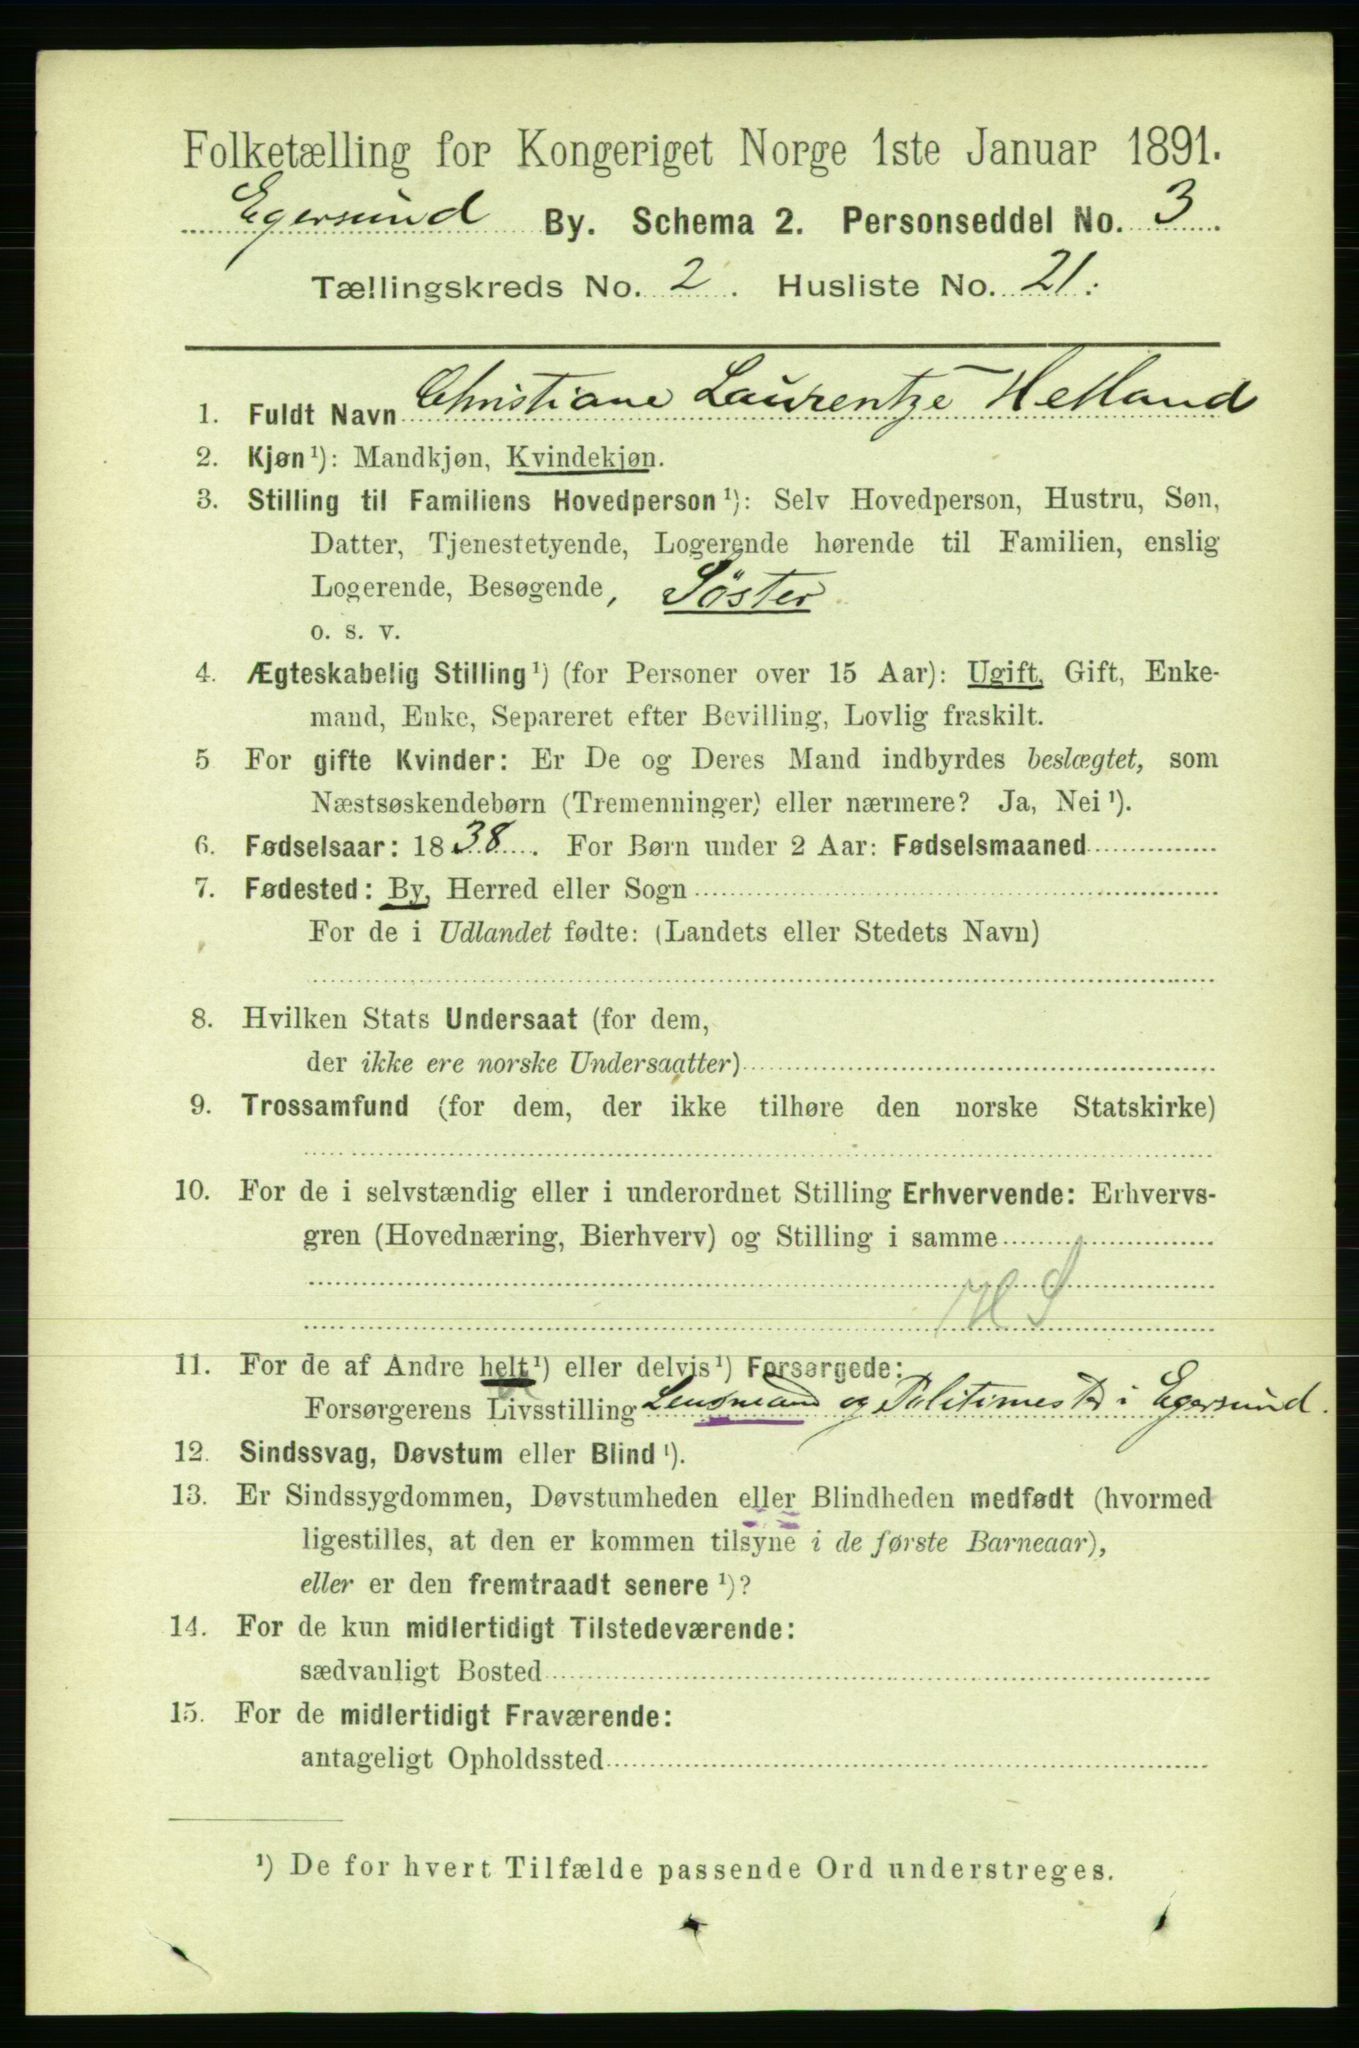 Folketælling for Kongeriget Norge 1ste Januar 1891.
Egersund By. Schema 2. Personseddel No. 3
Tællingskreds No. 2. Husliste No. 21.
1. Fuldt Navn Christiane Laurentze Helland
2. Kjøn¹): Mandkjøn, Kvindekjøn.
3. Stilling til Familiens Hovedperson¹): Selv Hovedperson, Hustru, Søn,
Datter, Tjenestetyende, Logerende hørende til Familien, enslig
Logerende, Besøgende, Söster
o. s. v.
4. Ægteskabelig Stilling¹) (for Personer over 15 Aar): Ugift, Gift, Enke-
mand, Enke, Separeret efter Bevilling, Lovlig fraskilt.
5 For gifte Kvinder: Er De og Deres Mand indbyrdes beslægtet, som
Næstsøskendebørn (Tremenninger) eller nærmere? Ja, Nei¹).
6. Fødselsaar: 1838. For Børn under 2 Aar: Fødselsmaaned
7. Fødested: By, Herred eller Sogn
For de i Udlandet fødte: (Landets eller Stedets Navn)
8. Hvilken Stats Undersaat (for dem,
der ikke ere norske Undersaatter)
9. Trossamfund (for dem, der ikke tilhøre den norske Statskirke)
10. For de i selvstændig eller i underordnet Stilling Erhvervende: Erhvervs-
gren (Hovednæring, Bierhverv) og Stilling i samme
HS
11. For de af Andre helt¹) eller delvis¹) Forsørgede:
Forsørgerens Livsstilling Lensmand og Politimester i Egersund.
12. Sindssvag, Døvstum eller Blind¹).
13. Er Sindssygdommen, Døvstumheden eller Blindheden medfødt (hvormed
ligestilles, at den er kommen tilsyne i de første Barneaar),
eller er den fremtraadt senere¹)?
14. For de kun midlertidigt Tilstedeværende:
sædvanligt Bosted
15. For de midlertidigt Fraværende:
antageligt Opholdssted
¹) De for hvert Tilfælde passende Ord understreges.